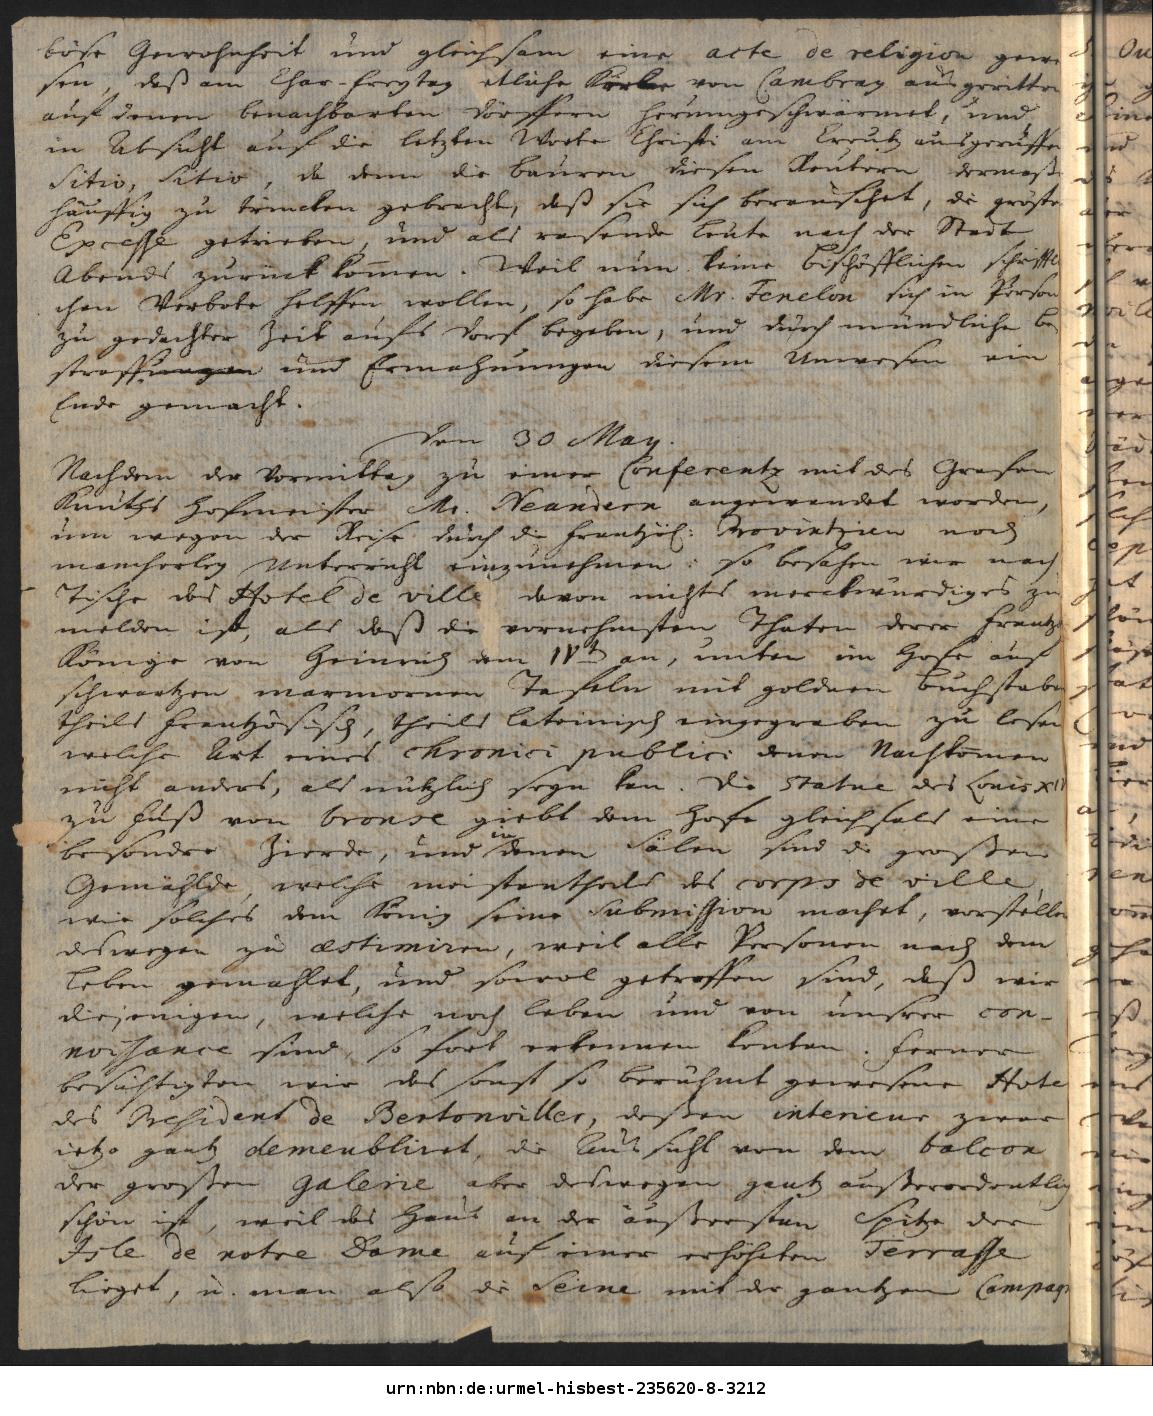 böse Gewohnheit und gleichsam eine acte de religion gewe
sen, daß am Char-freytag etliche Kerls von Cambray ausgeritten
auf denen benachbarten Dörffern herumgeschwärmet, und
in Absicht auf die letzten Worte Christi am Creutz ausgeruffen
Sitio, Sitio, da denn die Bauren diesen Reutern dermaß
häuffig zu trincken gebracht, daß sie sich berauschet, die gröste
Excesse getrieben, und als rasende Leute nach der Stadt
Abends zurück kom̄en. Weil nun keine Bischöfflichen schrifftli
chen Verbote helffen wollen, so habe Mr. Fenelon sich in Person
zu gedachter Zeit aufs Dorf begeben, und durch mündliche be
straffungen und Ermahnungen diesem Unwesen ein
Ende gemacht.
den 30 May.
Nachdem der Vormittag zu einer Conferentz mit des Grafen
Knuths Hofmeister Mr. Neandern angewendet worden,
um wegen der Reise durch die Frantzöß: Provintzien noch
mancherley Unterricht einzunehmen: so besahen wir nach
Tische das Hotel de ville davon nichts merckwürdiges zu
melden ist, als daß die vornehmsten Thaten derer Frantz
Könige von Heinrich dem IVt an, unten im Hofe auf
schwartzen marmornen Tafeln mit goldnen Buchstaben
theils Frantzösisch, theils lateinisch eingegraben zu lesen
welche Art eines chronici publici denen Nachkom̄en
nicht anders, als nützlich seyn kan. Die Statue des Louis XIV
zu Fuß von bronse giebt dem Hofe gleichfals eine
besondre Zierde, und in denen Sälen sind die großen
Gemählde, welche meistentheils das corps de ville,
wie solches dem König seine Submission machet, vorstellen
deswegen zu æstimiren, weil alle Personen nach dem
Leben gemahlet, und sowol getroffen sind, daß wir
diejenigen, welche noch leben und von unsrer con-
noissance sind, so fort erkennen konten. Ferner
besichtigten wir das sonst so berühmt gewesene Hotel
des President de Bertonviller, deßen interieur zwar
ietzo gantz demeubliret, die Aussicht von dem balcon
der großen Galerie aber deswegen gantz außerordentlich
schön ist, weil das Haus an der äußersten Spitze der
Isle de notre Dame auf einer erhöheten Terrasse
lieget, u. man also die Seine mit der gantzen Campag
urn:nbn:de:urmel-hisbest-235620-8-3212